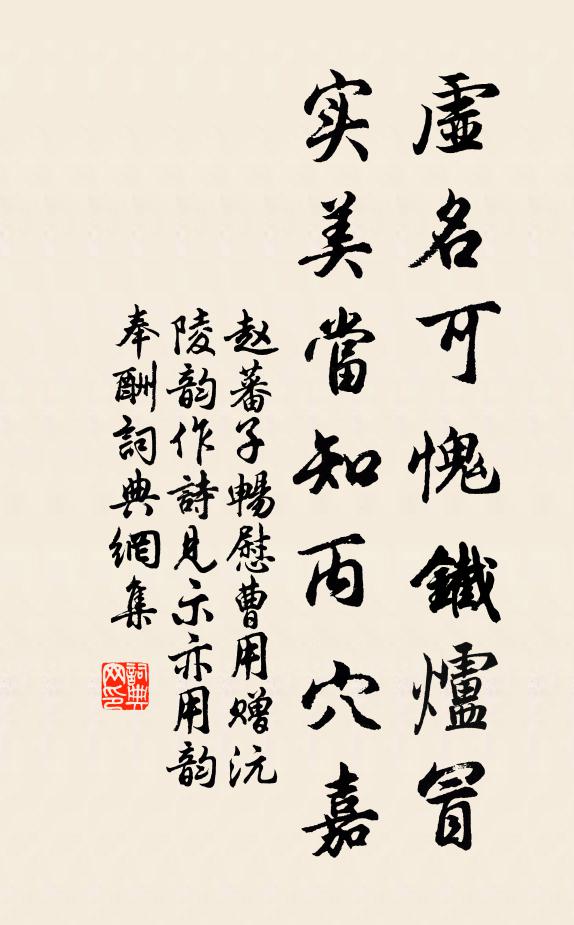 虛名可愧鐵爐冒
实美當知丙穴嘉
赵蕃子暢慰曹用赠沅
陵韵作詩見示亦用韵
奉酬詞典網集
詞典网印